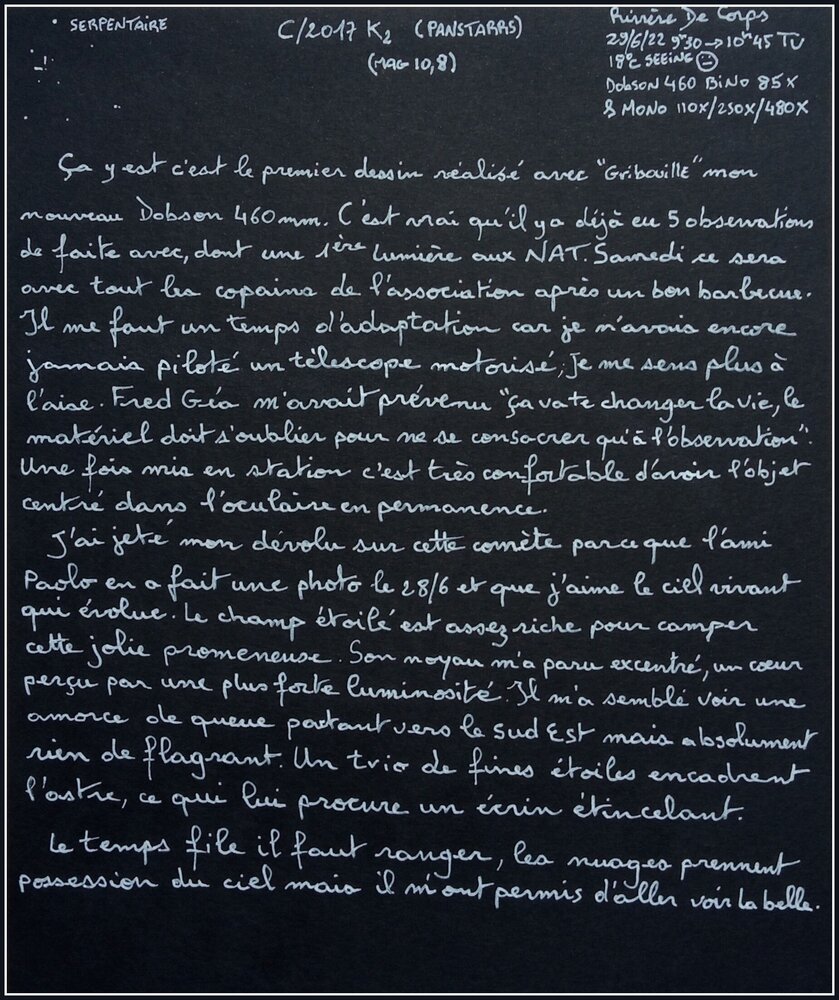 SERPENTAIRE
C/2017 K2 (PANSTARRS)
(MAG 10,8)
Rivière De Corps
29/6/22 9h30 → 10h45 TU
18°C SEEING
Dobson 460 BiNo 85X
& MONO 110X/250X/480X
Ça y est c'est le premier dessin réalisé avec "Gribouille" mon
nouveau Dobson 460mm. C'est vrai qu'il y a déjà eu 5 observations
de faite avec, dont une 1ère Lumière aux NAT. Samedi ce sera
avec tout les copains de l'association après un bon barbecue.
Il me faut un temps d'adaptation car je n'avais encore
jamais piloté un télescope motorisé, Je me sens plus à
l'aise. Fred Géa m'avait prévenu "ça va te changer la vie, le
matériel doit s'oublier pour ne se consacrer qu'à l'observation".
Une fois mis en station c'est très confortable d'avoir l'objet
centré dans l'oculaire en permanence.
J'ai jeté mon dévolu sur cette comète parce que l'ami
Paolo en a fait une photo le 28/6 et que j'aime le ciel vivant
qui évolue. Le champ étoilé est assez riche pour camper
cette jolie promeneuse. Son noyau m'a paru excentré, un cœur
perçu par une plus forte luminosité. Il m'a semblé voir une
amorce de queue partant vers le Sud Est mais absolument
rien de flagrant. Un trio de fines étoiles encadrent
l'astre, ce qui lui procure un écrin étincelant.
Le temps file il faut ranger, les nuages prennent
possession du ciel mais il m'ont permis d'aller voir la belle.